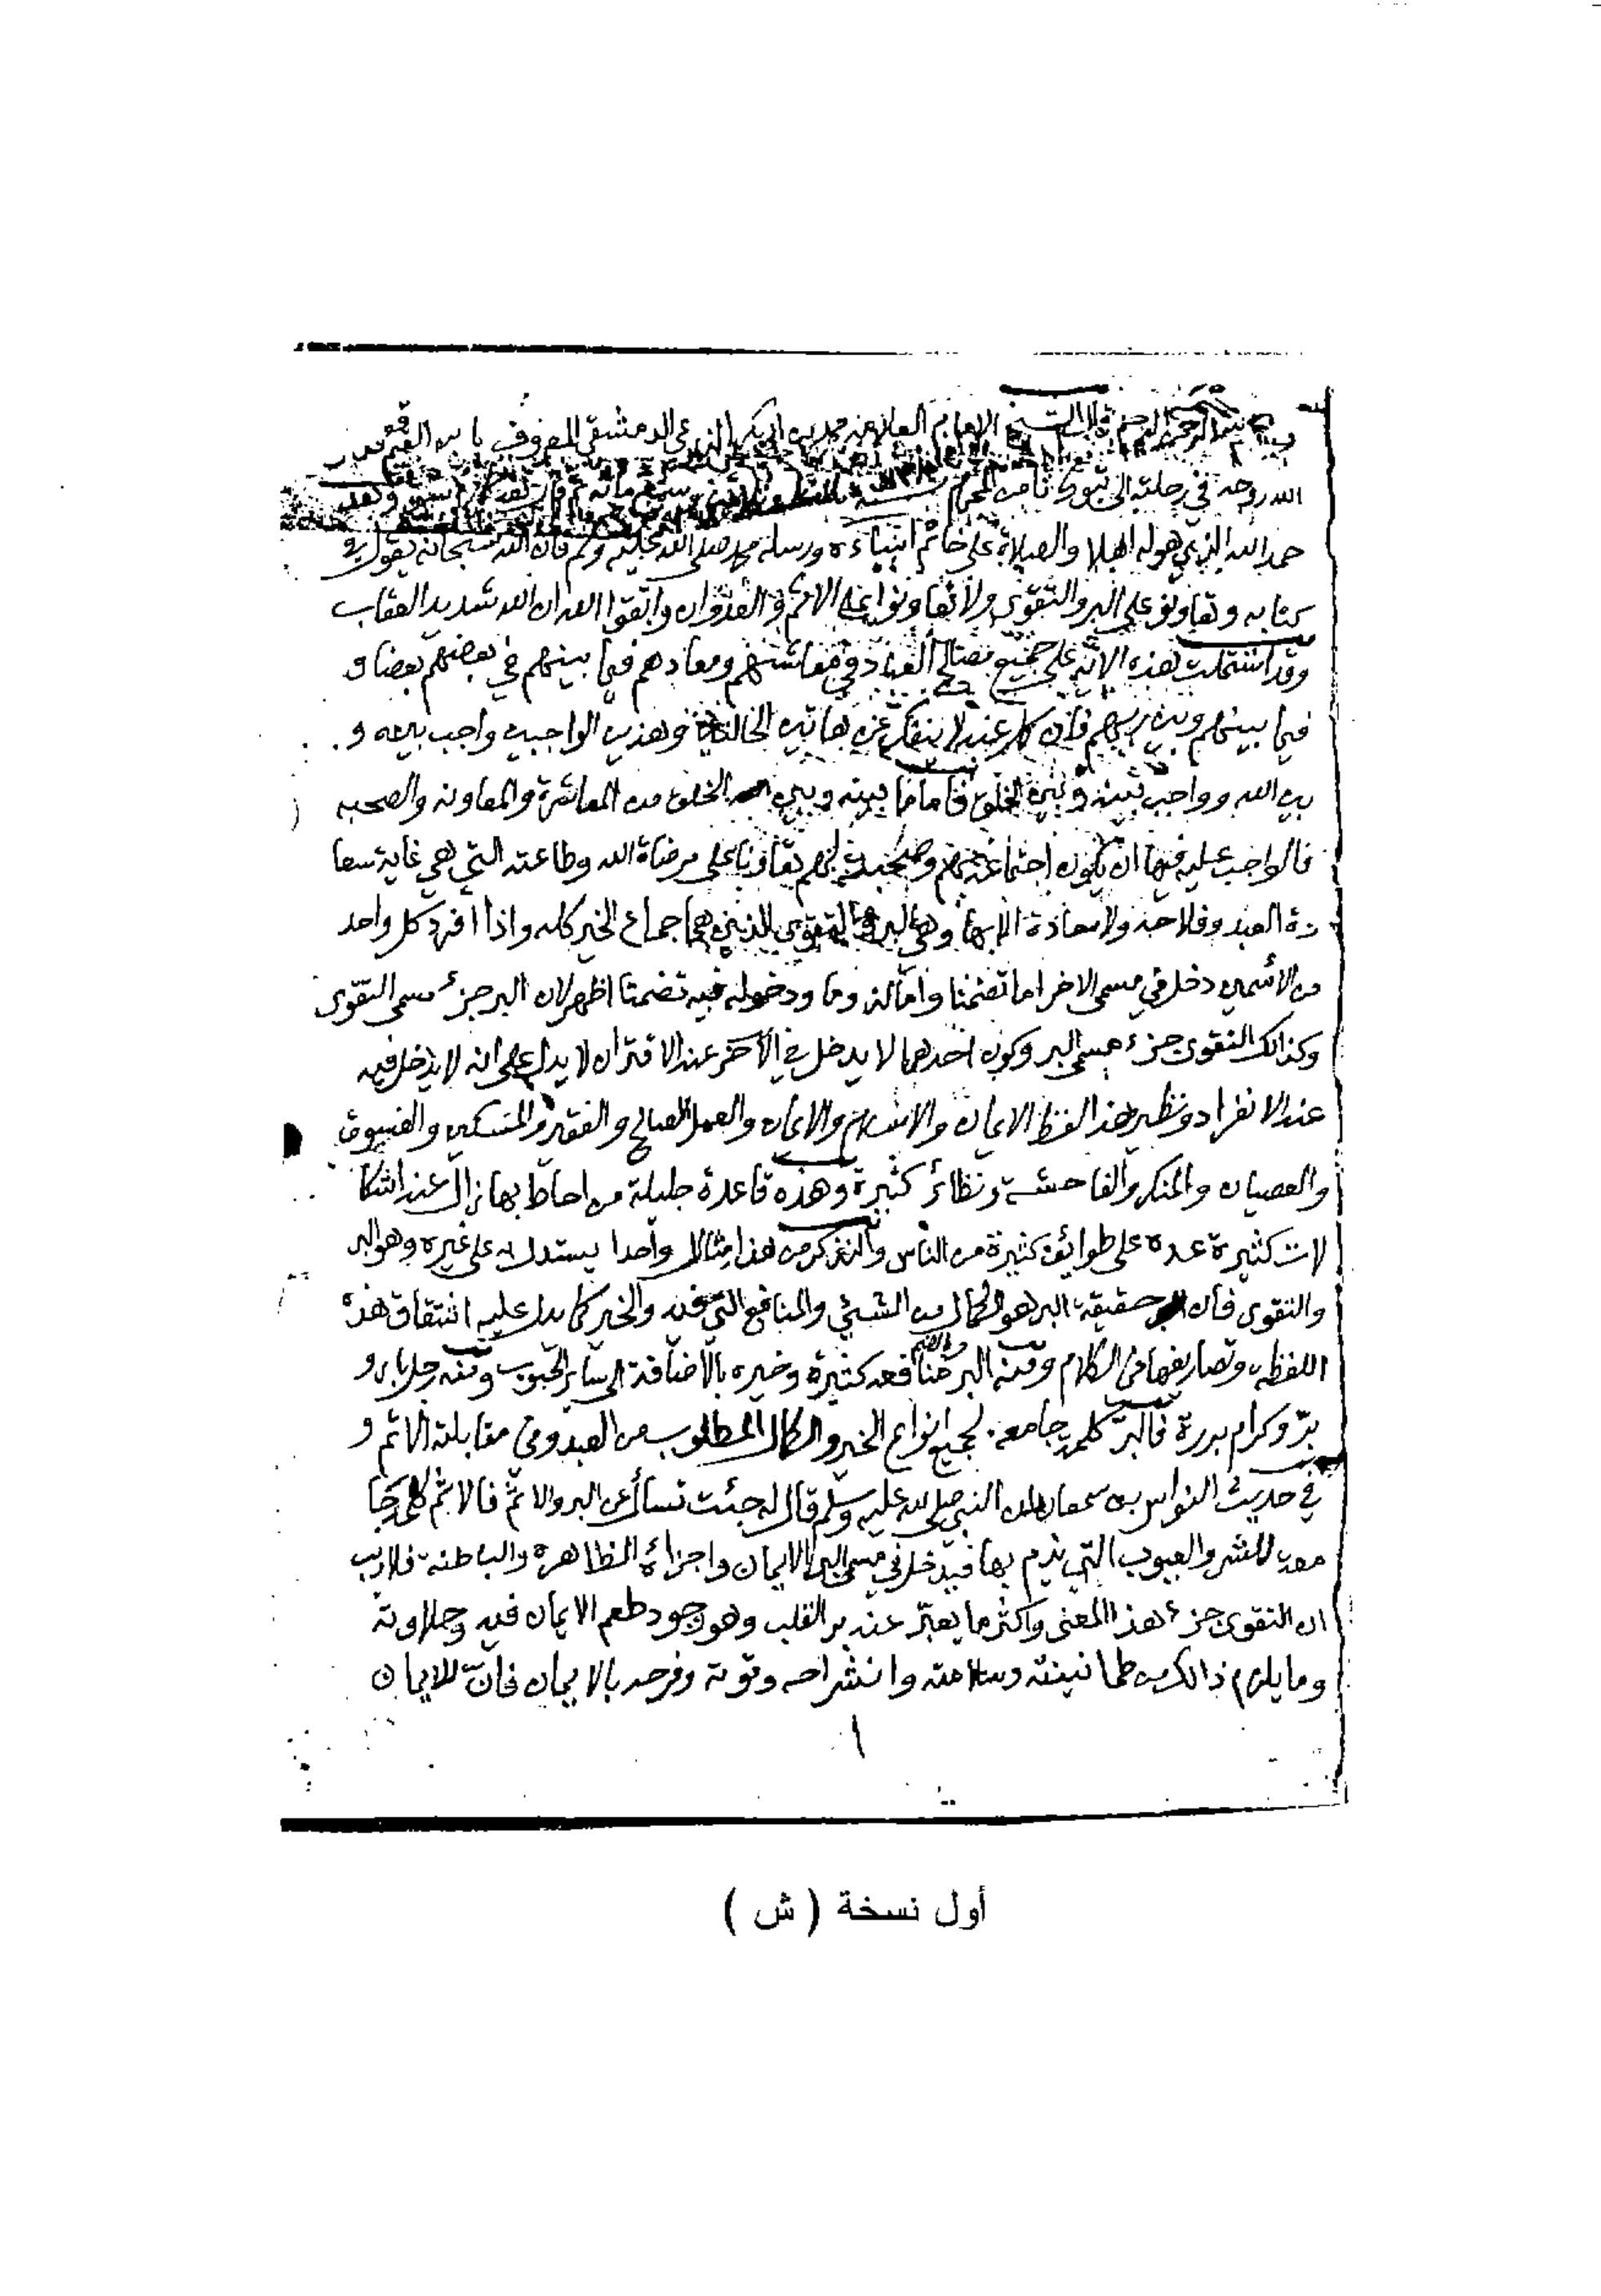 بسم الله الرحمن الرحيم قال الشيخ الامام العلامة محمد بن ابي بكر الزرعي الدمشقي المعروف بابن القيم
الله روحه في رحلته الى تبوك ثامن المحرم سنة
حمد الله الذي هو له اهلا والصلاة على خاتم انبياءه ورسله محمد صلى الله عليه وسلم فان الله سبحانه يقول في
كتابه وتعاونو على البر والتقوى ولا تعاونوا على الاثم والعدوان واتقوا الله ان الله شديد العقاب
وقد اشتملت هذه الاية على جميع مصالح العباد في معاشهم ومعادهم فيما بينهم في بعضهم بعضا و
فيما بينهم وبين ربهم فان كل عبد لا ينفك عن هاتين الحالتين وهذين الواجبين واجب بينه و
بين الله وواجب بينه وبين الخلق فاما ما بينه وبين الخلق من المعاشرة والمعاونه والصحبه
فالواجب عليه فيها ان يكون اجتماعه بهم وصحبته لهم تعاونا على مرضاة الله وطاعته التي هي غاية سعا
دة العبد وفلاحه ولا سعادة الا بها وهي البر والتقوى الذين هما جماع الخير كله واذا افرد كل واحد
من الأسمين دخل في مسمى الاخر اما تضمنا واما لزوما ودخوله فيه تضمنا اظهر لان البر جزء مسمى التقوى
وكذالك التقوى جزء مسمى البر وكون احدهما لا يدخل في الآخر عند الاقتران لا يدل على انه لا يدخل فيه
عند الانفراد ونظير هذا لفظ الايمان والاسلام والايمان والعمل الصالح والفقير والمسكين والفسوق
والعصيان والمنكر والفاحشة ونظائر كثيرة وهذه قاعدة جليلة من احاط بها زال عنه اشكا
لات كثيرة عده على طوايف كثيرة من الناس والنذكر من هذا مثالا واحدا يستدل به على غيره وهو البر
والتقوى فان حقيقة البر هو الكمال من الشيئ والمنافع التي فيه والخير كما يدل عليه اشتقاق هذه
اللفظه وتصاريفها في الكلام ومنه البر منافعه كثيرة وخيره بالاضافة الى سائر الحبوب ومنه رجل بار و
برّ وكرام بررة فالبرّ كلمة جامعه لجميع انواع الخير والكمال المطلوب من العبد وفي مقابلته الاثم و
في حديث النواس بن سمعان ان النبي صلى الله عليه وسلم قال له جئت تسأل عن البر والاثم فالاثم كلمة جا
معه للشر والعيوب التي يذم بها فيدخل في مسمى البر الايمان واجزاءه الظاهره والباطنة فلا ريب
ان التقوى جزء هذا المعنى واكثر ما يعبّر عنه بر القلب وهو وجود طعم الايمان فيه وحلاوته
وما يلزم ذالك من طمانينته وسلامته وانشراحه وقوته وفرحه بالايمان فان للايمان
١
أول نسخة ( ش )